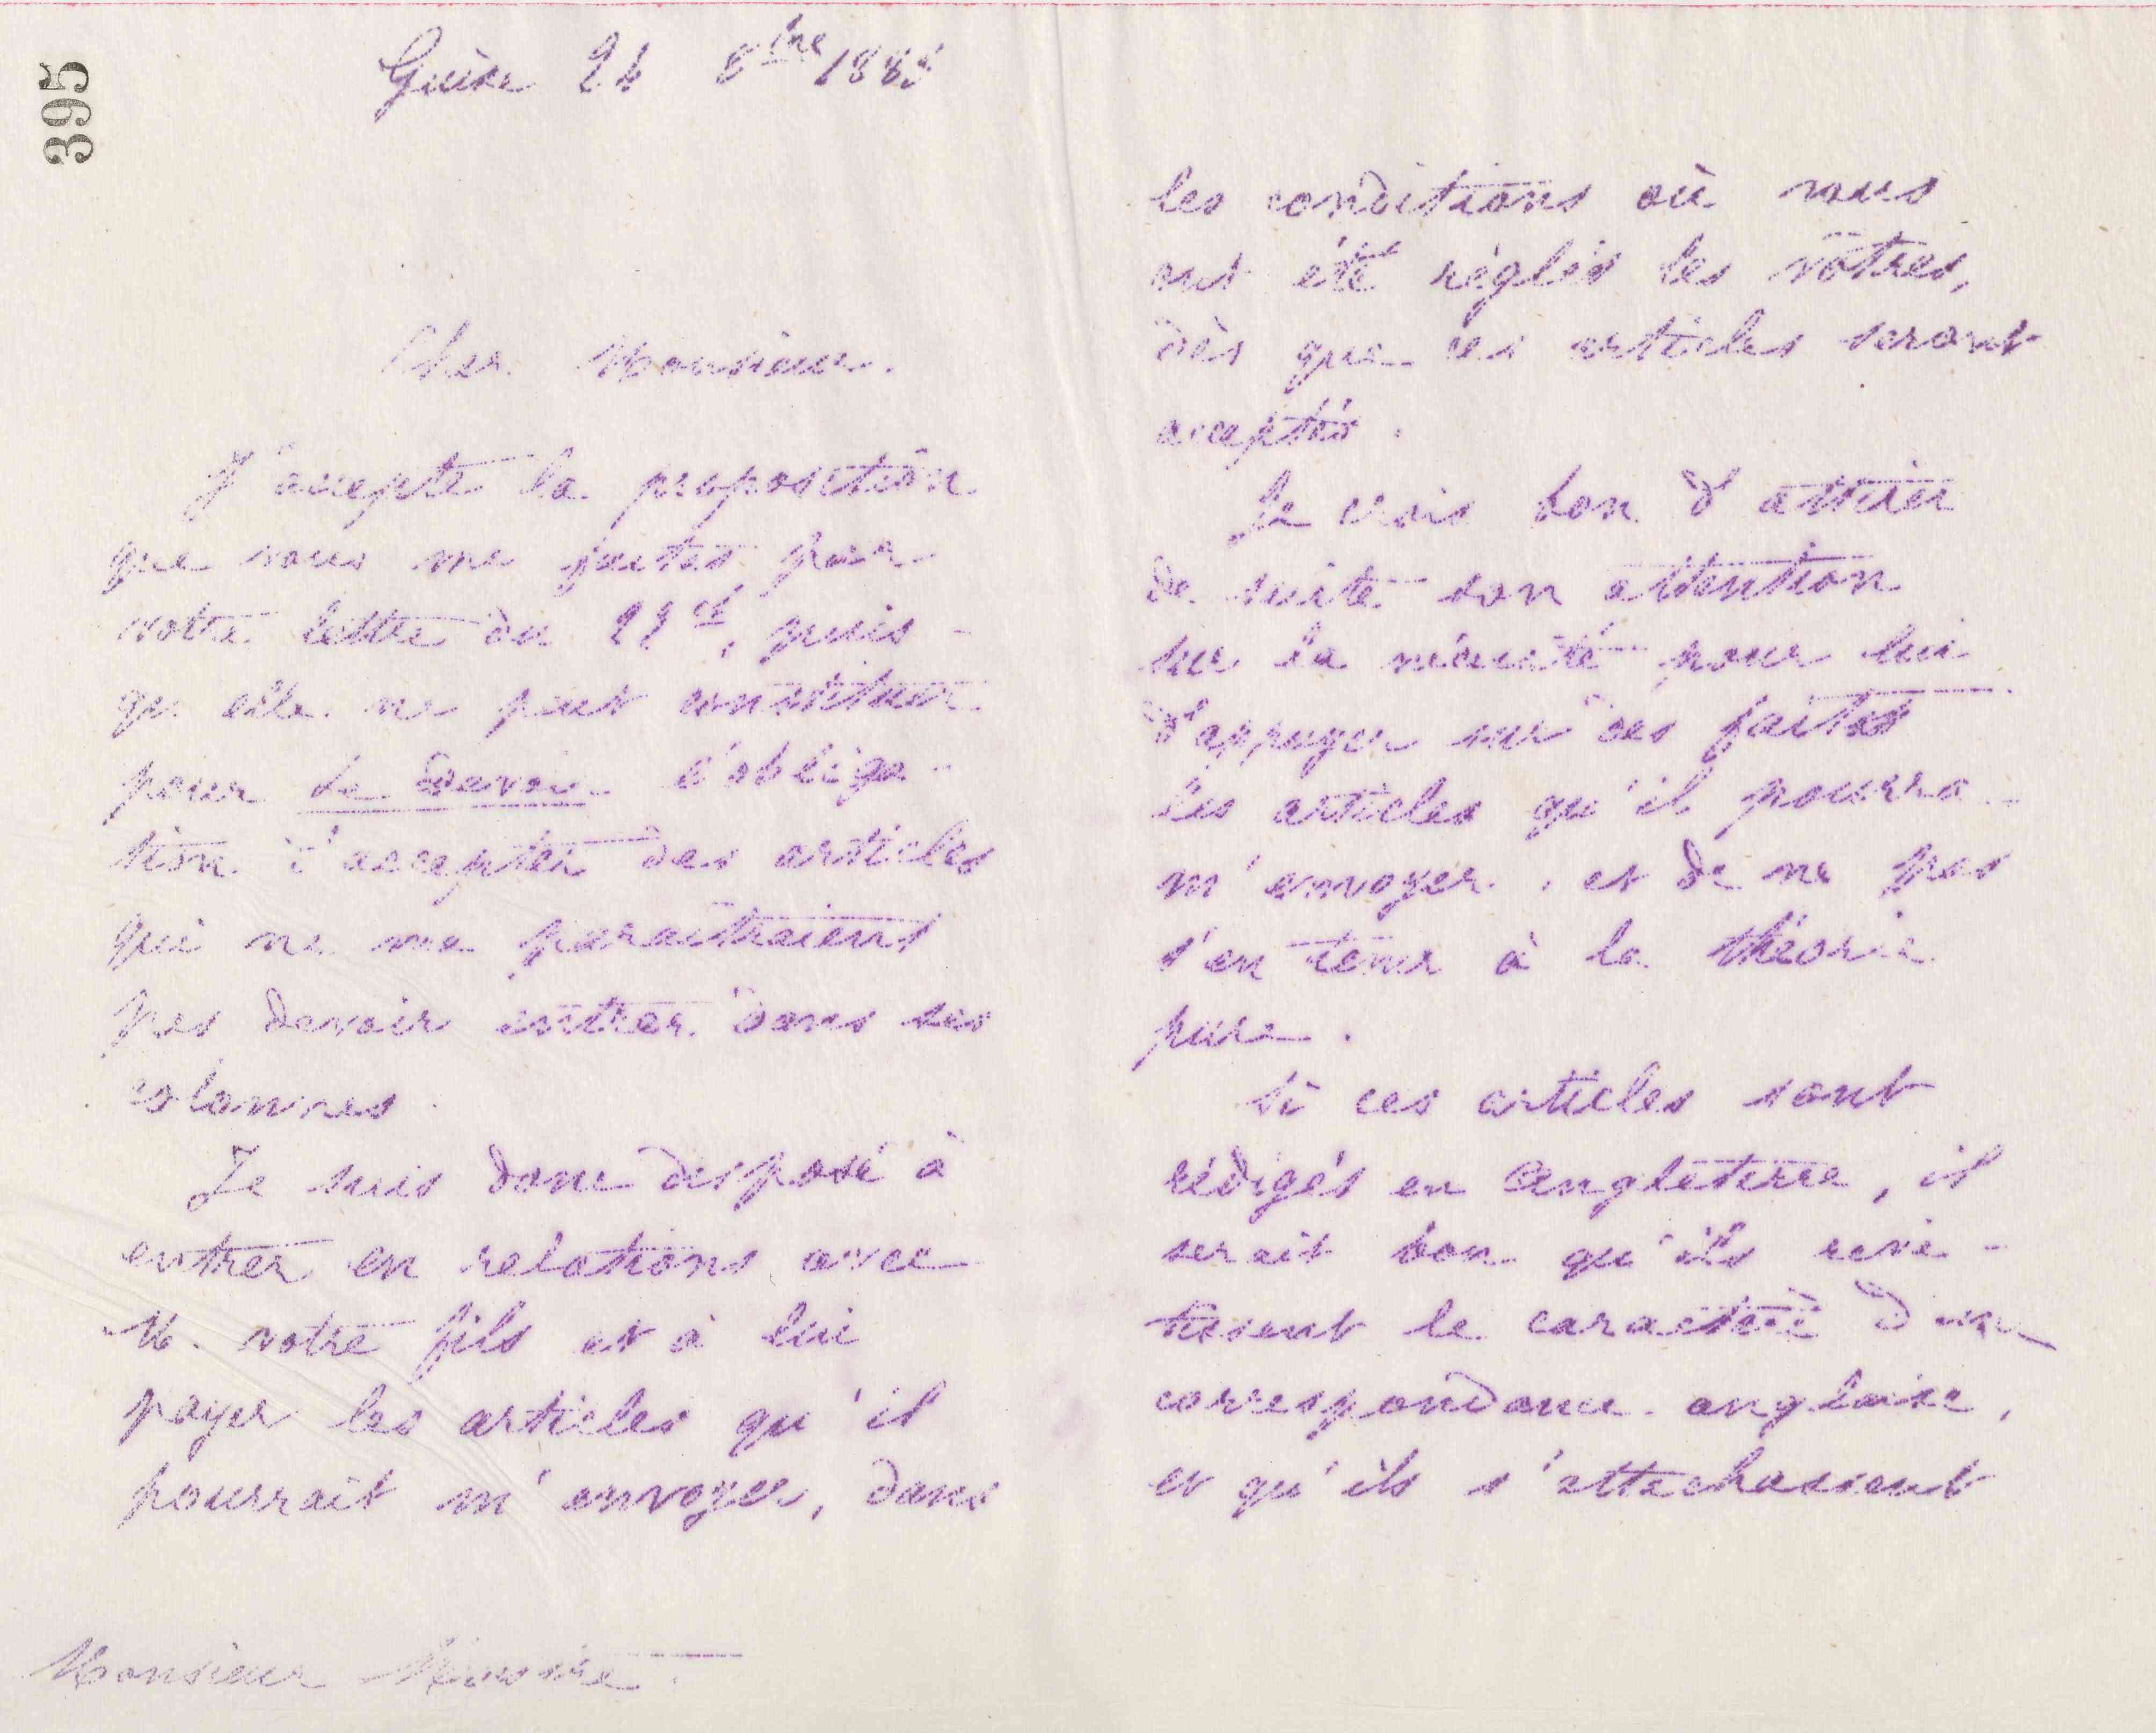 395
Guise 24 8bre 1885
Cher Monsieur.
J'accepte la proposition
que vous me faites par
votre lettre du 22 ct, puis-
qu'elle ne peut constituer
pour le Devoir l'obliga-
tion d'accepter des articles
qui ne me paraîtraient
pas devoir entrer dans ses
colonnes.
Je suis donc disposé à
entrer en relations avec
M. votre fils et à lui
payer les articles qu'il
pourrait m'envoyer, dans
Monsieur
les conditions où vous
ont été réglés les vôtres,
dès que ces articles seront
acceptés.
Je crois bon d'attirer
de suite son attention
sur la nécessité pour lui
d'appuyer sur des faits
les articles qu'il pourra
m'envoyer, et de ne pas
s'en tenir à la théorie
pure.
Si ces articles sont
rédigés en Angleterre, il
serait bon qu'ils revê-
tissent le caractère d'une
correspondance anglaise,
et qu'ils s'attachassent